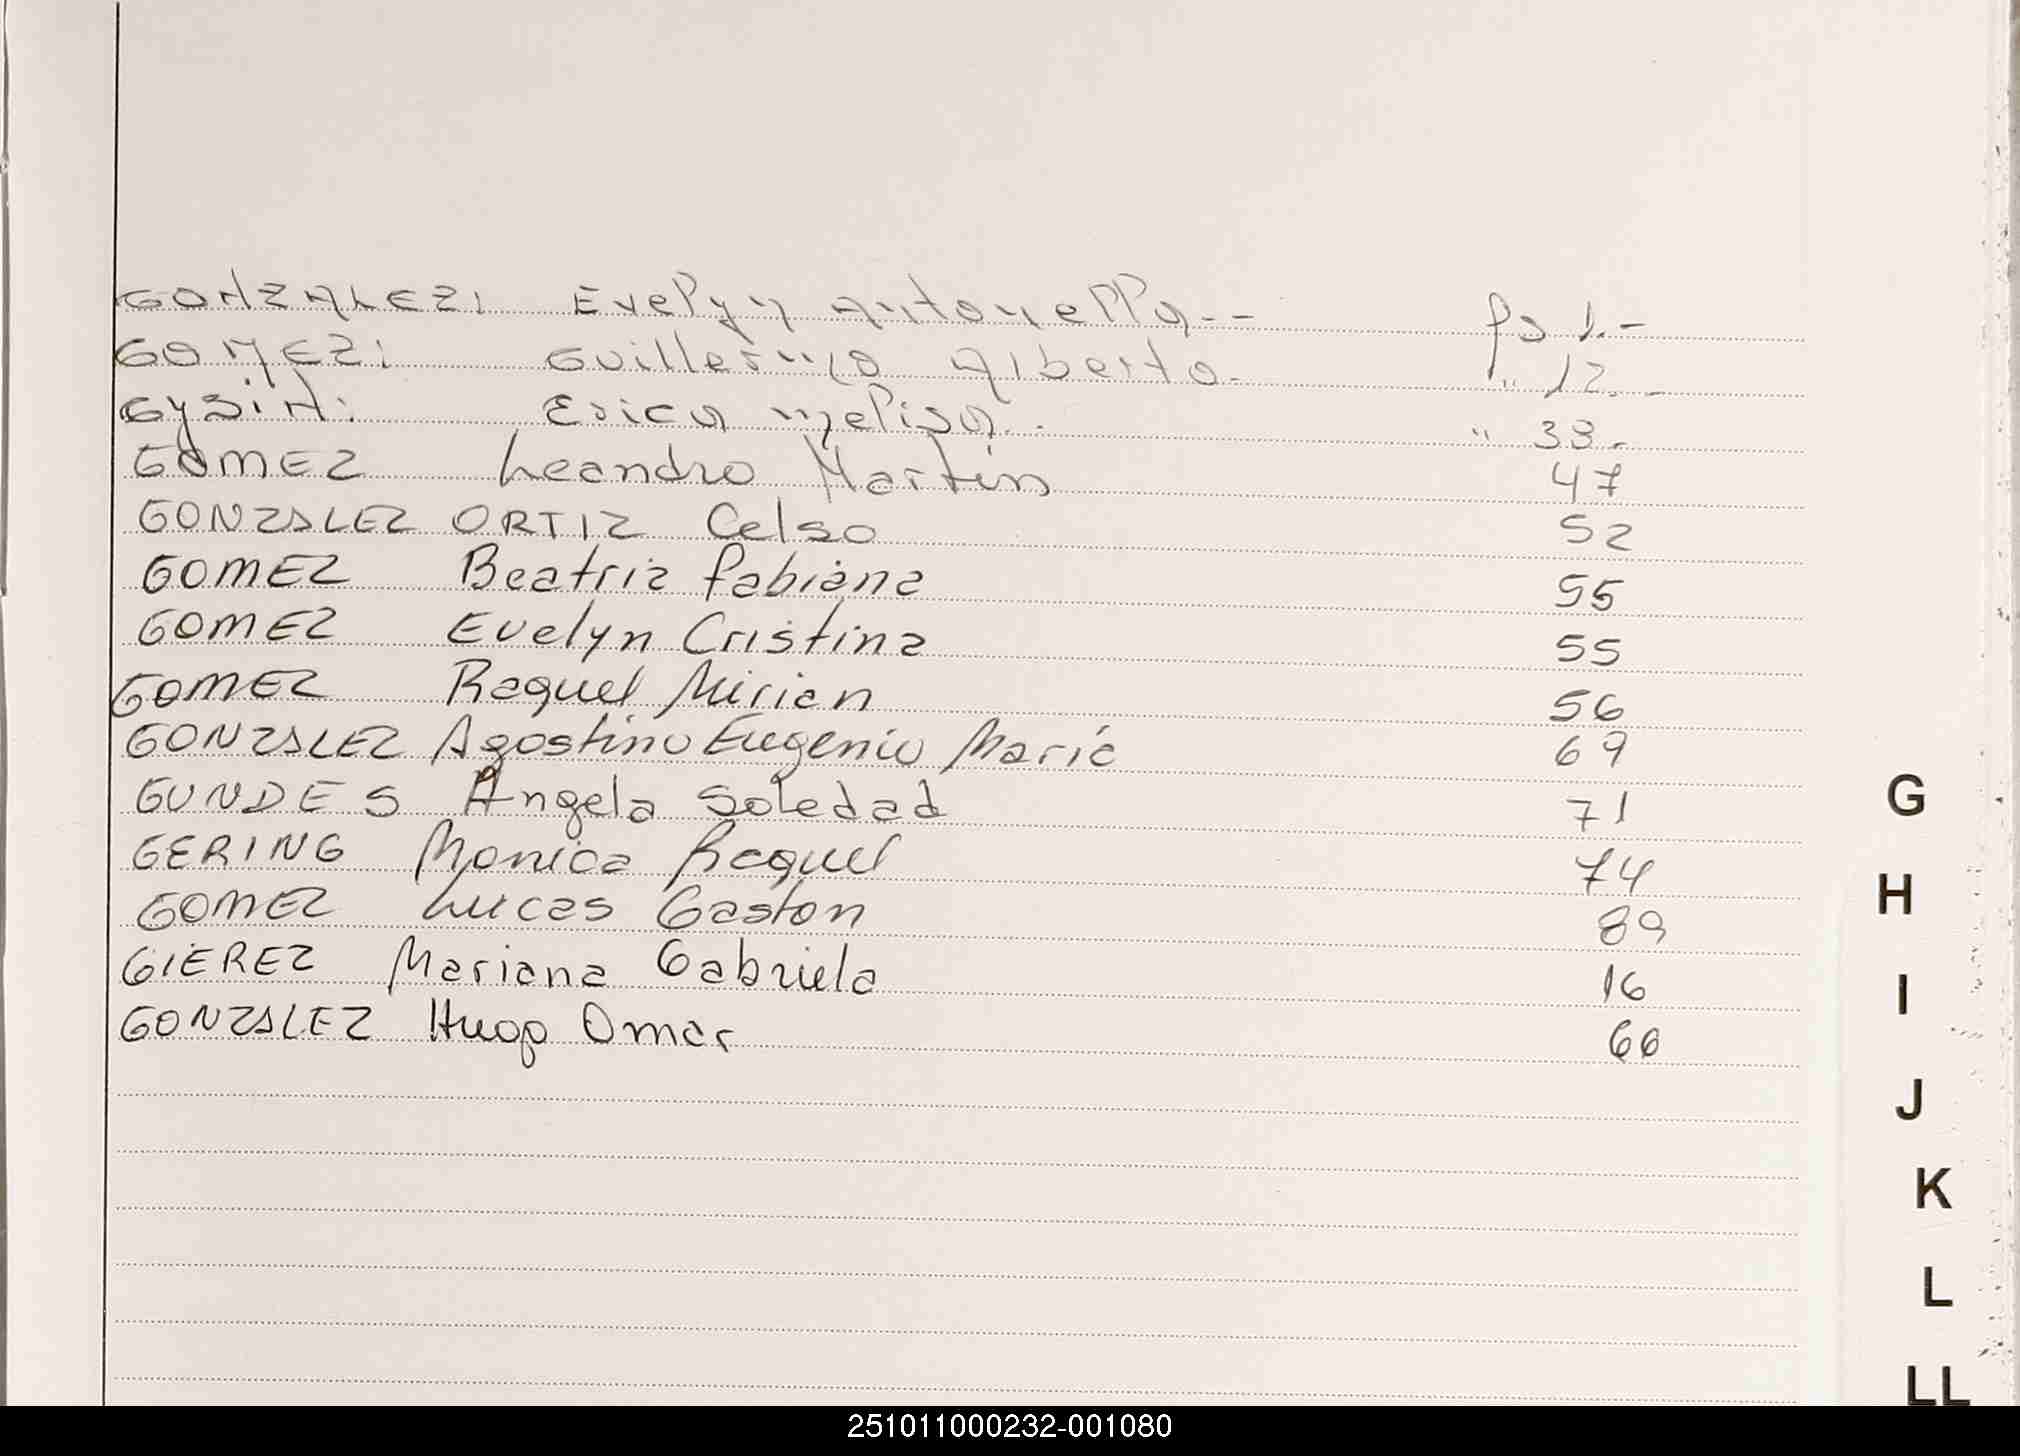 GONZALEZ: Evelyn Antonella.-- fs 1.-
GOMEZ: Guillermo Alberto.- " 12.-
GYSIN: Erica Melisa.. " 33.-
GOMEZ Leandro Martin 47
GONZALEZ ORTIZ Celso 52
GOMEZ Beatriz Fabiana 55
GOMEZ Evelyn Cristina 55
GOMEZ Raquel Mirian 56
GONZALEZ Agostino Eugenio Maria 69
GUNDES Angela Soledad 71
GERING Monica Raquel 74
GOMEZ Lucas Gaston 89
GIEREZ Mariana Gabriela 16
GONZALEZ Hugo Omar 66
G
H
I
J
K
L
LL
251011000232-001080